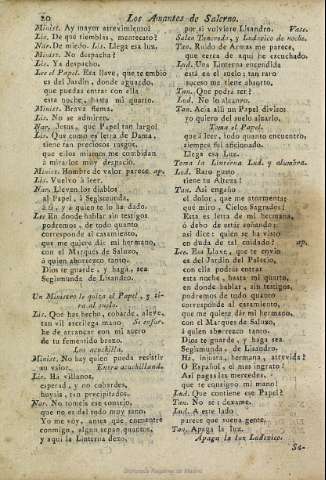 20
Los Amantes de Salerno.
Minist. Ay mayor atrevimiento!
Lis. De qué tiemblas, mentecato?
Nar. De miedo. Lis. Llega esa luz.
Minist. No despacha?
Lis. Ya despacho.
Lee el Papel. Esa llave, que te embio
es del Jardin, donde aguardo,
que puedas entrar con ella
esta noche, hasta mi quarto.
Minist. Brava flema.
Lis. No se admiren.
Nar. Jesus, qué Papel tan largo!
Lis. Que como es letra de Dama,
tiene tan preciosos rasgos,
que ellos mismos me combidan
á mirarlos muy despacio.
Minist. Hombre de valor parece. ap.
Lis. Vuelvo á leer.
Nar. Lleven los diablos
al Papel, á Segismunda,
á tí, y á quien te lo ha dado.
Lee En donde hablar sin testigos
podremos, de todo quanto
corresponde al casamiento,
que me quiere dár mi hermano,
con el Marqués de Saluzo,
á quien aborrezco tanto.
Dios te guarde, y haga, sea
Segismunda de Lisandro.
Un Ministro le quita el Papel, y ti-
ra al suelo.
Lis. Qué has hecho, cobarde, aleve,
tan vil sacrilega mano
he de arrancar con mi acero
de tu fementido brazo.
Los acuchilla.
Minist. No hay quien pueda resistir
su valor. Entra acuchillando.
Lis. Há villanos,
esperad, y no cobardes,
huyais, tan precipitados.
Nar. No tomeis ese consejo,
que no es del todo muy sano,
Yo me voy, antes que encuentre
conmigo, algun sepan quantos,
y aqui la Linterna dexo,
por si volviere Lisandro. Vase.
Salen Tancredo, y Ludovico de noche.
Tan. Ruido de Armas me parece,
que cerca de aqui he escuchado.
Lud. Una Linterna encendida
está en el suelo; tan raro
suceso me tiene absorto.
Tan. Qué podrá ser?
Lud. No lo alcanzo.
Tan. Acia allí un Papel diviso;
yo quiero del suelo alzarlo.
Toma el Papel.
que á leer, todo quanto encuentro,
siempre fui aficionado.
Llega esa Luz.
Toma la Linterna Lud. y alumbra.
Lud. Raro gusto
tiene tu Alteza!
Tan. Asi engaño
el dolor, que me atormenta;
qué miro, Cielos Sagrados!
Esta es letra de mi hermana,
ó debo de estár soñando;
asi dice: quién se ha visto
en duda de tal cuidado? ap.
Lee. Esa Llave, que te envio
es del Jardin del Palacio,
con ella podrás entrar
esta noche, hasta mi quarto,
en donde hablar, sin testigos,
podremos de todo quanto
corresponde al casamiento,
que me quiere dár mi hermano,
con el Marqués de Saluzo,
á quien aborrezco tanto.
Dios te guarde, y haga sea
Segismunda de Lisandro.
Há, injusta, hermana, atrevida!
O Español, el mas ingrato!
Asi pagas las mercedes,
que te consigno mi mano!
Lud. Qué contiene ese Papel?
Tan. No sé: dexame.
Lud. A este lado
parece que suena gente.
Tan. Apaga la luz.
Apaga la luz Ludovico.
Sa-
Biblioteca Regional de Madrid